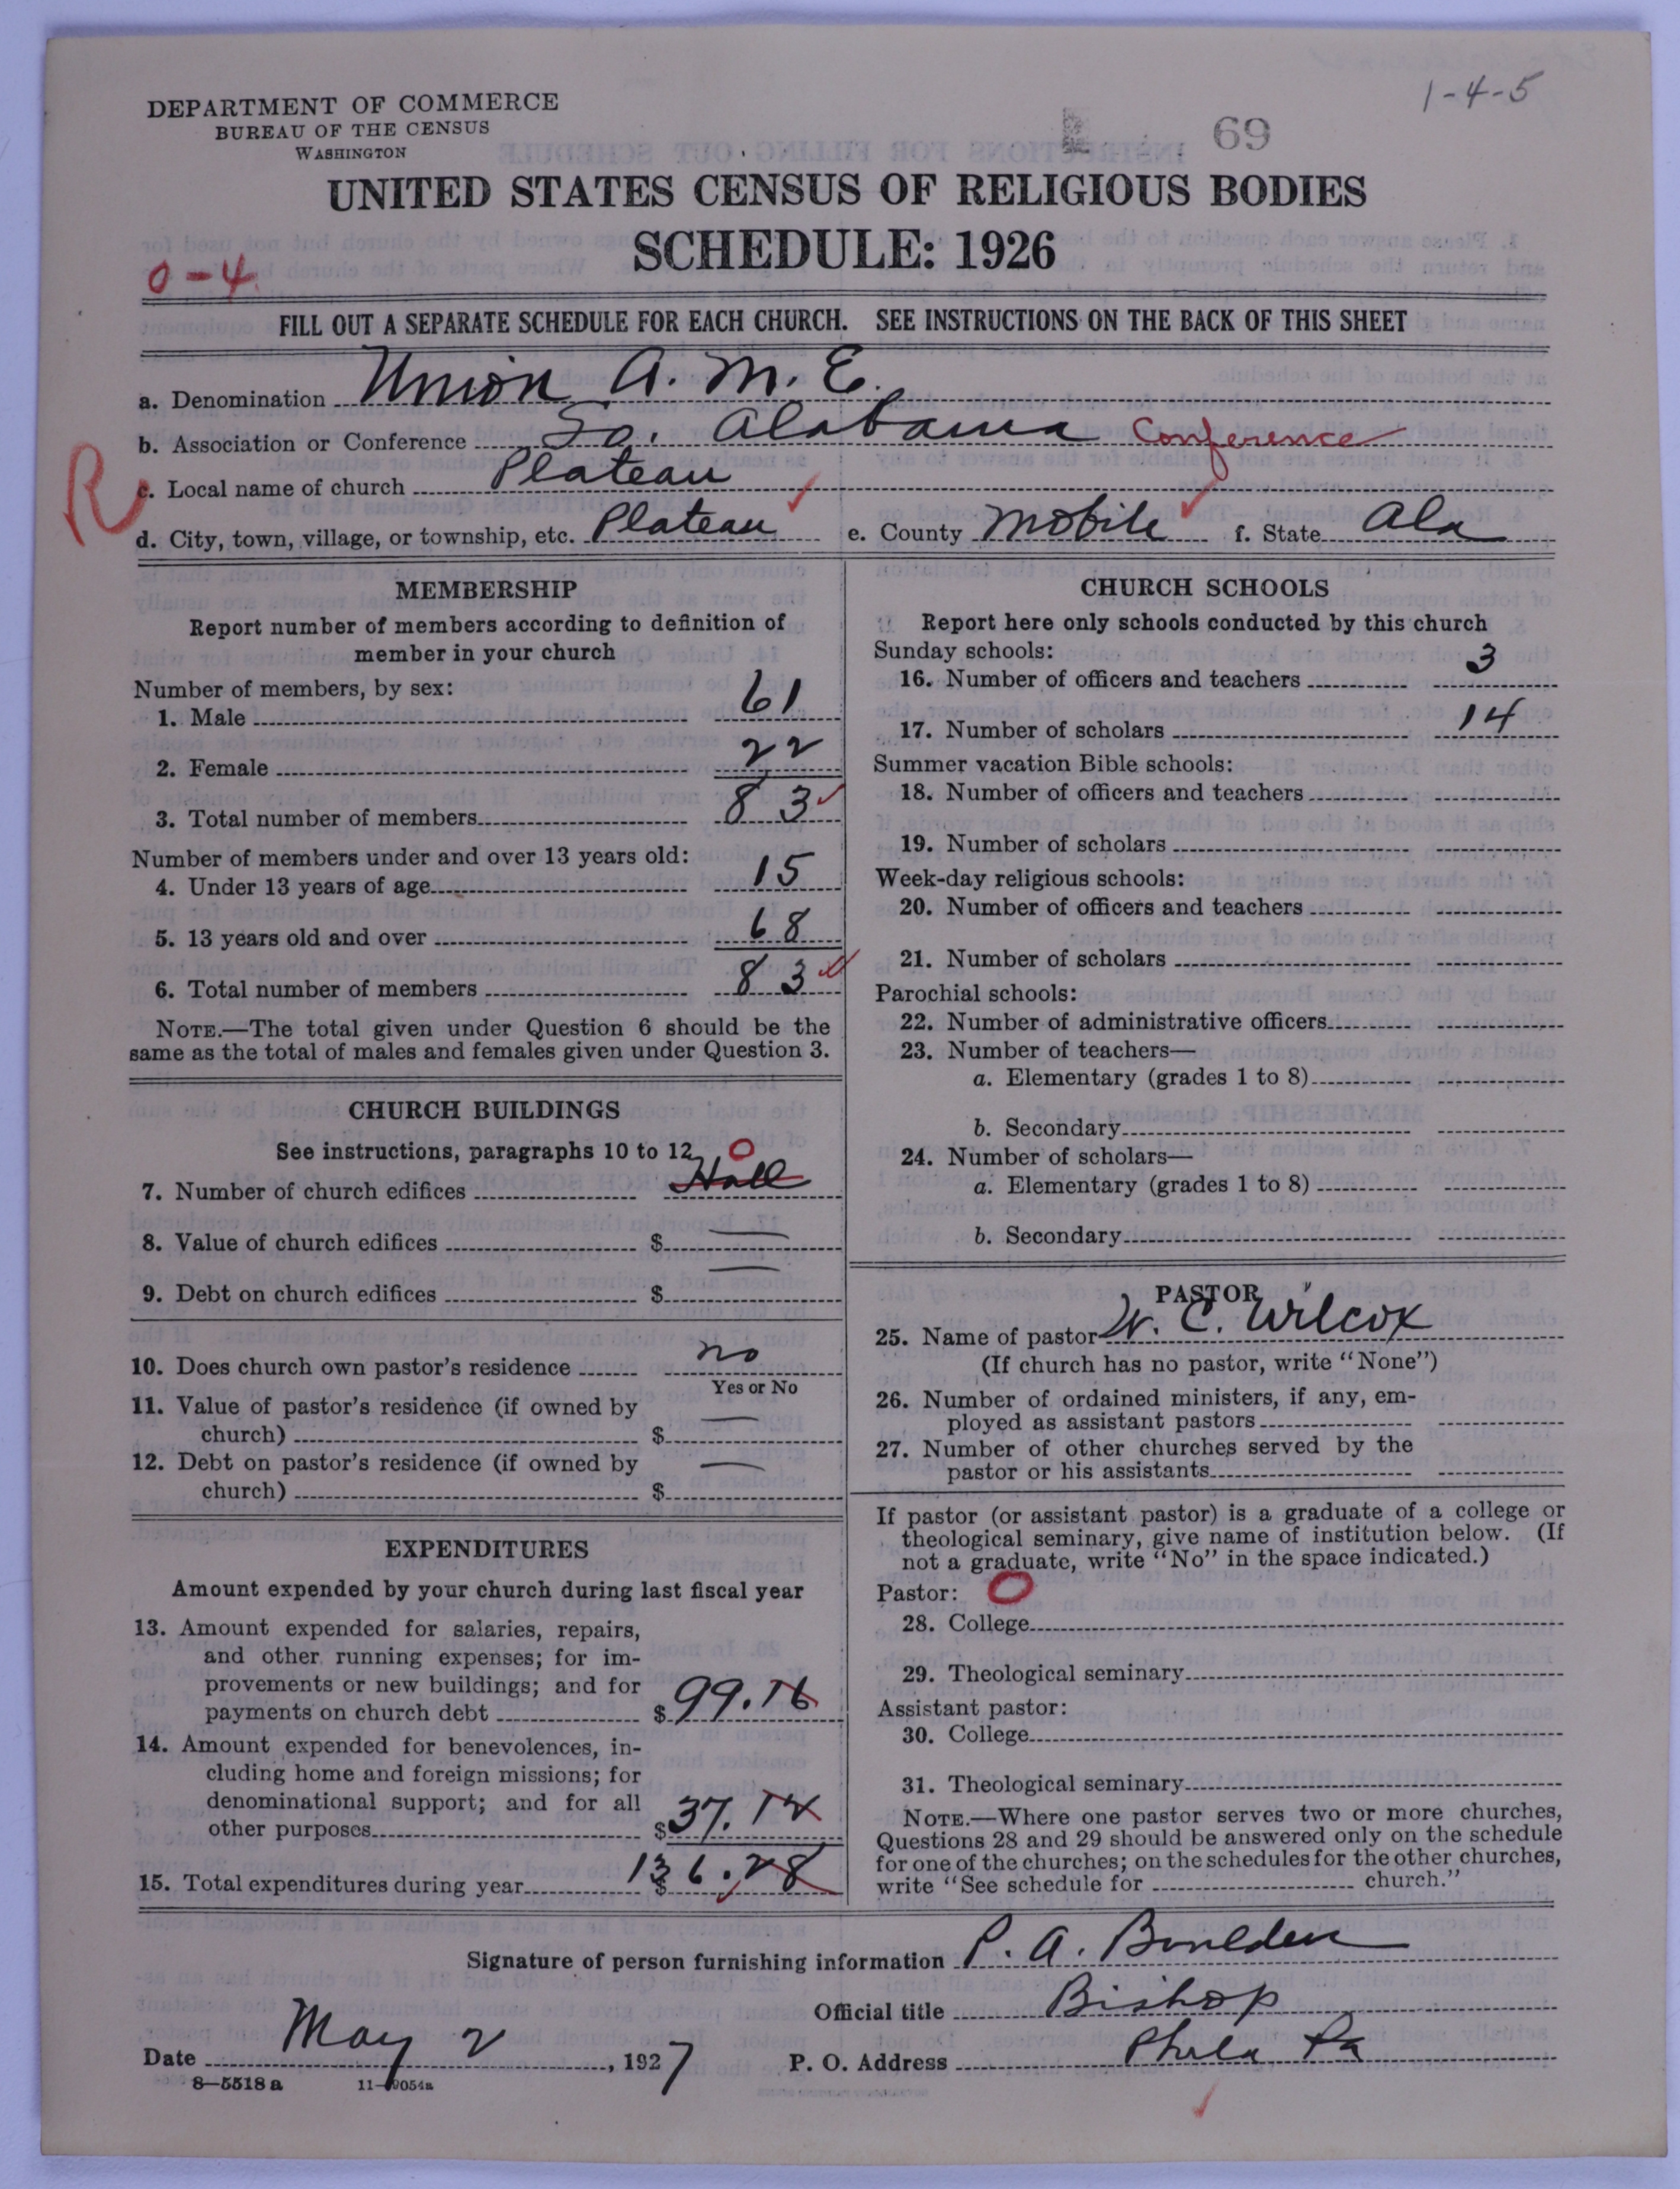 1-4-5
DEPARTMENT OF COMMERCE
BUREAU OF THE CENSUS
WASHINGTON
69
UNITED STATES CENSUS OF RELIGIOUS BODIES
SCHEDULE: 1926
0-4
FILL OUT A SEPARATE SCHEDULE FOR EACH CHURCH. SEE INSTRUCTIONS ON THE BACK OF THIS SHEET
a. Denomination Union A. M. E.
b. Association or Conference So. Alabama Conference
R
c. Local name of church Plateau
d. City, town, village, or township, etc. Plateau e. County Mobile f. State Ala
MEMBERSHIP
Report number of members according to definition of
member in your church
Number of members, by sex:
1. Male 61
2. Female 22
3. Total number of members 83
Number of members under and over 13 years old:
4. Under 13 years of age 15
5. 13 years old and over 68
6. Total number of members 83
NOTE.—The total given under Question 6 should be the
same as the total of males and females given under Question 3.
CHURCH BUILDINGS
See instructions, paragraphs 10 to 12
0
7. Number of church edifices Hall
8. Value of church edifices $ —
9. Debt on church edifices $ —
10. Does church own pastor's residence no
Yes or No
11. Value of pastor's residence (if owned by
church) $ —
12. Debt on pastor's residence (if owned by
church) $ —
EXPENDITURES
Amount expended by your church during last fiscal year
13. Amount expended for salaries, repairs,
and other running expenses; for im-
provements or new buildings; and for
payments on church debt $ 99.16
14. Amount expended for benevolences, in-
cluding home and foreign missions; for
denominational support; and for all
other purposes $ 37.12
15. Total expenditures during year $ 136.28
CHURCH SCHOOLS
Report here only schools conducted by this church
Sunday schools:
16. Number of officers and teachers 3
17. Number of scholars 14
Summer vacation Bible schools:
18. Number of officers and teachers
19. Number of scholars
Week-day religious schools:
20. Number of officers and teachers
21. Number of scholars
Parochial schools:
22. Number of administrative officers
23. Number of teachers—
a. Elementary (grades 1 to 8)
b. Secondary
24. Number of scholars—
a. Elementary (grades 1 to 8)
b. Secondary
PASTOR
25. Name of pastor W. C. Wilcox
(If church has no pastor, write "None")
26. Number of ordained ministers, if any, em-
ployed as assistant pastors
27. Number of other churches served by the
pastor or his assistants
If pastor (or assistant pastor) is a graduate of a college or
theological seminary, give name of institution below. (If
not a graduate, write "No" in the space indicated.)
Pastor: 0
28. College
29. Theological seminary
Assistant pastor:
30. College
31. Theological seminary
NOTE.—Where one pastor serves two or more churches,
Questions 28 and 29 should be answered only on the schedule
for one of the churches; on the schedules for the other churches,
write "See schedule for church."
Signature of person furnishing information P. A. Boulden
Official title Bishop
Date May 2, 1927 P. O. Address Phila Pa
8—5518 a 11—9054a